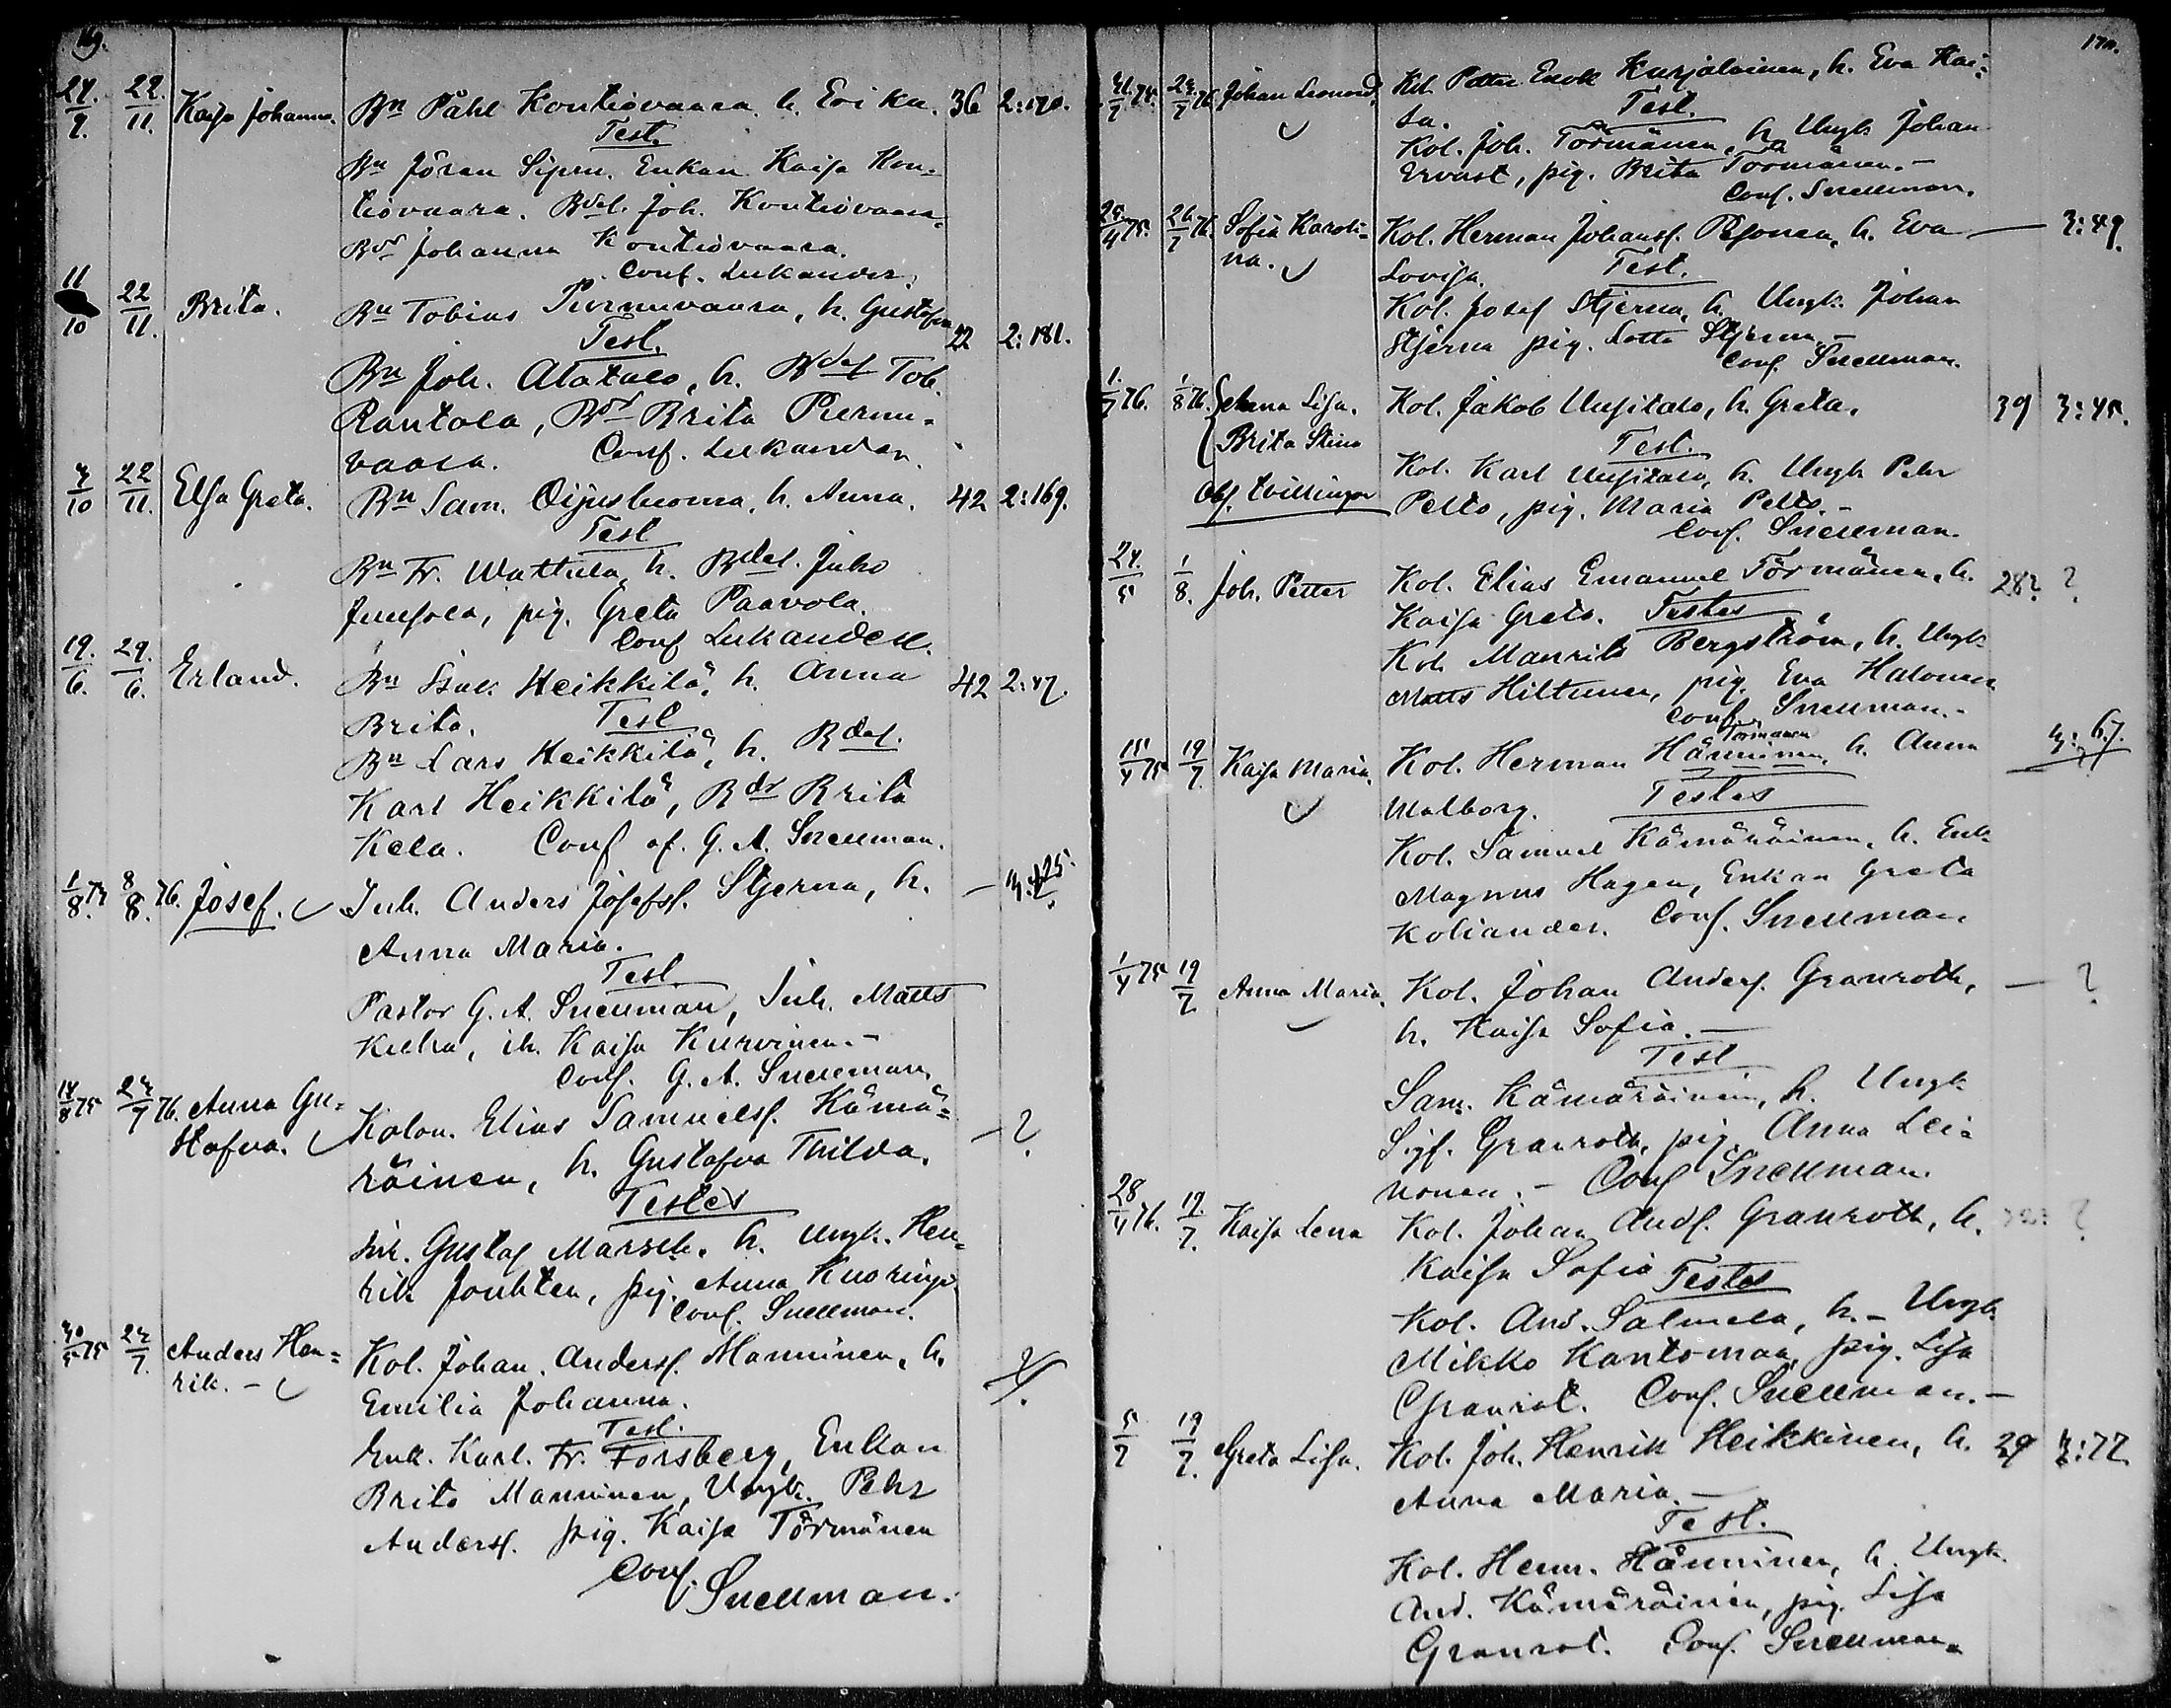 24/9. 22/11. Kaisa Johanna. Bn Påhl Kontiovaara h. Erika. 36 2:170.
Test.
Bn Jöran Enkan Kaisa Kon-
tiovaara. Bdsl. Joh. Kontiovaara
Bdr Johanna Kontiovaara.
Conf. Lukander.
11/10 22/11. Brita. Bn Tobias Purnuvaara, h. Gustafva 22 2:181.
Test.
Bn Joh. Alatalo, h. Bdsl Tob.
Rantola, Bdr Brita Purnu-
vaara. Conf. Lukander.
3/10 22/11. Elsa Greta. Bn Sam. Oijusluoma, h. Anna. 42 2:169.
Test
Bn Fr. Wattula h. Bdsl. Juho
Juusola, pig. Greta Paavola.
Conf Lukander.
19./6. 29./6. Erland. Bn Isak Heikkilä, h. Anna 42 2:47.
Brita. Test
Bn Lars Heikkilä, h. Bdsl.
Karl Heikkilä, Bdr Brita
Kela. Conf af. G. A. Snellman.
1/8 73 8/8. 76. Josef. Inh. Anders Josefss. Stjerna, h. —
Anna Maria.
Test
Pastor G. A. Snellman, Inh. Matts
ih. Kaisa Kurvinen.-
Conf. G. A. Snellman.
14/8 75 23/7 76. Anna Gu- Kolon. Elias Samuelss. Kämä- — ?
stafva. räinen, h. Gustafva Thilda.
Testes
Inh. Gustaf Marsch. h. Ungk. Hen-
rik Jouhten, pig. Anna Kuoringi
Conf. Snellman.
30/5 75 23/7. Anders Hen- Kol. Johan. Anderss. Manninen, h. ?
rik. - Emilia Johanna.
Test.
Enk. Karl. Fr. Forsberg, Enkan
Brita Manninen, Ungk. Pehr
Anderss. pig. Kaisa Törmänen
Conf.
Snellman.
170.
/7 75. 23/7 76 Johan Leonard. Kol. Petter Enok Kurjalainen, h. Eva Kai-
sa. Test.
Kol. Joh. Törmänen, h. Ungk Johan
Ervast, pig. Brita Törmänen.-
Conf. Snellman.
25/4 75. 26/7 76. Sofia Karoli- Kol. Herman Johanss. Pesonen, h. Eva — 3:49.
na. Lovisa. Test.
Kol. Josef Stjerna, h. Ungk. Johan
Stjerna pig. Lotta Stjerna.-
Conf. Snellman.
1./7 76. 1/8 76. Anna Lisa. Kol. Jakob Uusitalo, h. Greta. 39 3:45.
Brita Stina Test.
Kol. Karl Uusitalo, h. Ungk Pehr
Obs. tvillingar Pelto, pig. Maria Pelto.-
Conf. Snellman.
24./5 1/8. Joh. Petter Kol. Elias Emanuel Törmänen, h. 28? ?
Kaisa Greta. Testes
Kol. Maurits Bergström, h. Ungk
Matts Hiltunen, pig. Eva Halonen
Conf. Snellman.-
Törmänen
15/4 75 19/7. Kaisa Maria. Kol. Herman Hänninen, h. Anna 3:67.
Walborg. Testes
Kol. Samuel Kämäräinen, h. Enk.
Magnus Hagen, Enkan Greta
Koliander. Conf. Snellman
1/4 75 19/7 Anna Maria. Kol. Johan Anders. Granroth, — ?
h. Kaisa Sofia.—
Test
Sam. Kämäräinen, h. Ungk
Sigf. Granroth, pig. Anna Lei-
nonen.- Conf Snellman.
28/4 76. 19./7. Kaisa Lena Kol. Johan Ands. Granroth, h. ?
Kaisa Sofia Testes
Kol. And. Salmela, h.- Ungk.
Mikko Kantomaa, pig. Lisa
Granrot. Conf. Snellman.-
5/7 19/7. Greta Lisa. Kol. Joh. Henrik Heikkinen, h. 29 3:77.
Anna Maria.—
Test.
Kol. Herm. Hänninen, h. Ungk.
And. Kämäräinen, pig. Lisa
Granrot. Conf. Snellman.